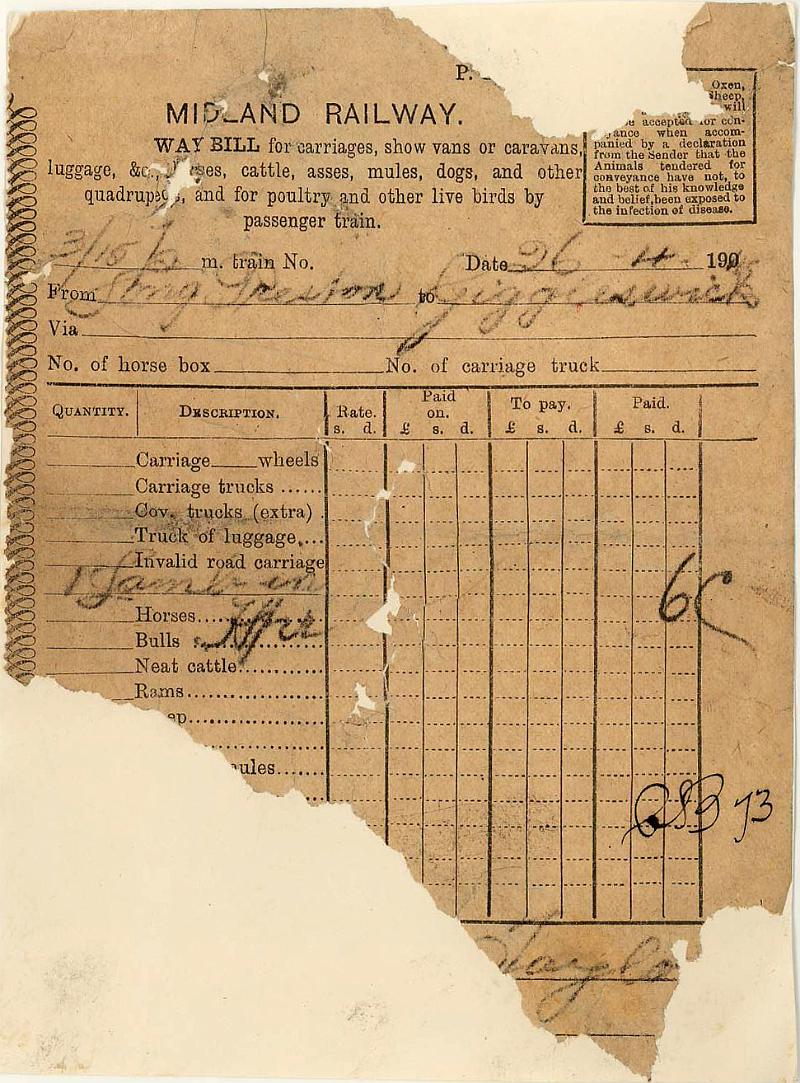 P.
MIDLAND RAILWAY.
WAY BILL for carriages, show vans or caravans,
luggage, &c., horses, cattle, asses, mules, dogs, and other
quadrupeds, and for poultry and other live birds by
passenger train.
Oxen,
Sheep,
will
be accepted for con-
veyance when accom-
panied by a declaration
from the Sender that the
Animals tendered for
conveyance have not, to
the best of his knowledge
and belief, been exposed to
the infection of disease.
3/15 m. train No. Date 26 4 190
From Long Preston to Giggleswick
Via
No. of horse box No. of carriage truck
QUANTITY. DESCRIPTION. Rate. Paid on. To pay. Paid.
s. d. £ s. d. £ s. d. £ s. d.
Carriage wheels
Carriage trucks ......
Cov. trucks (extra) .
Truck of luggage....
Invalid road carriage
1 Lamb in
6
Horses....
Bulls
Neat cattle............
Rams..................
ep..................
ules.......
73
Taylo